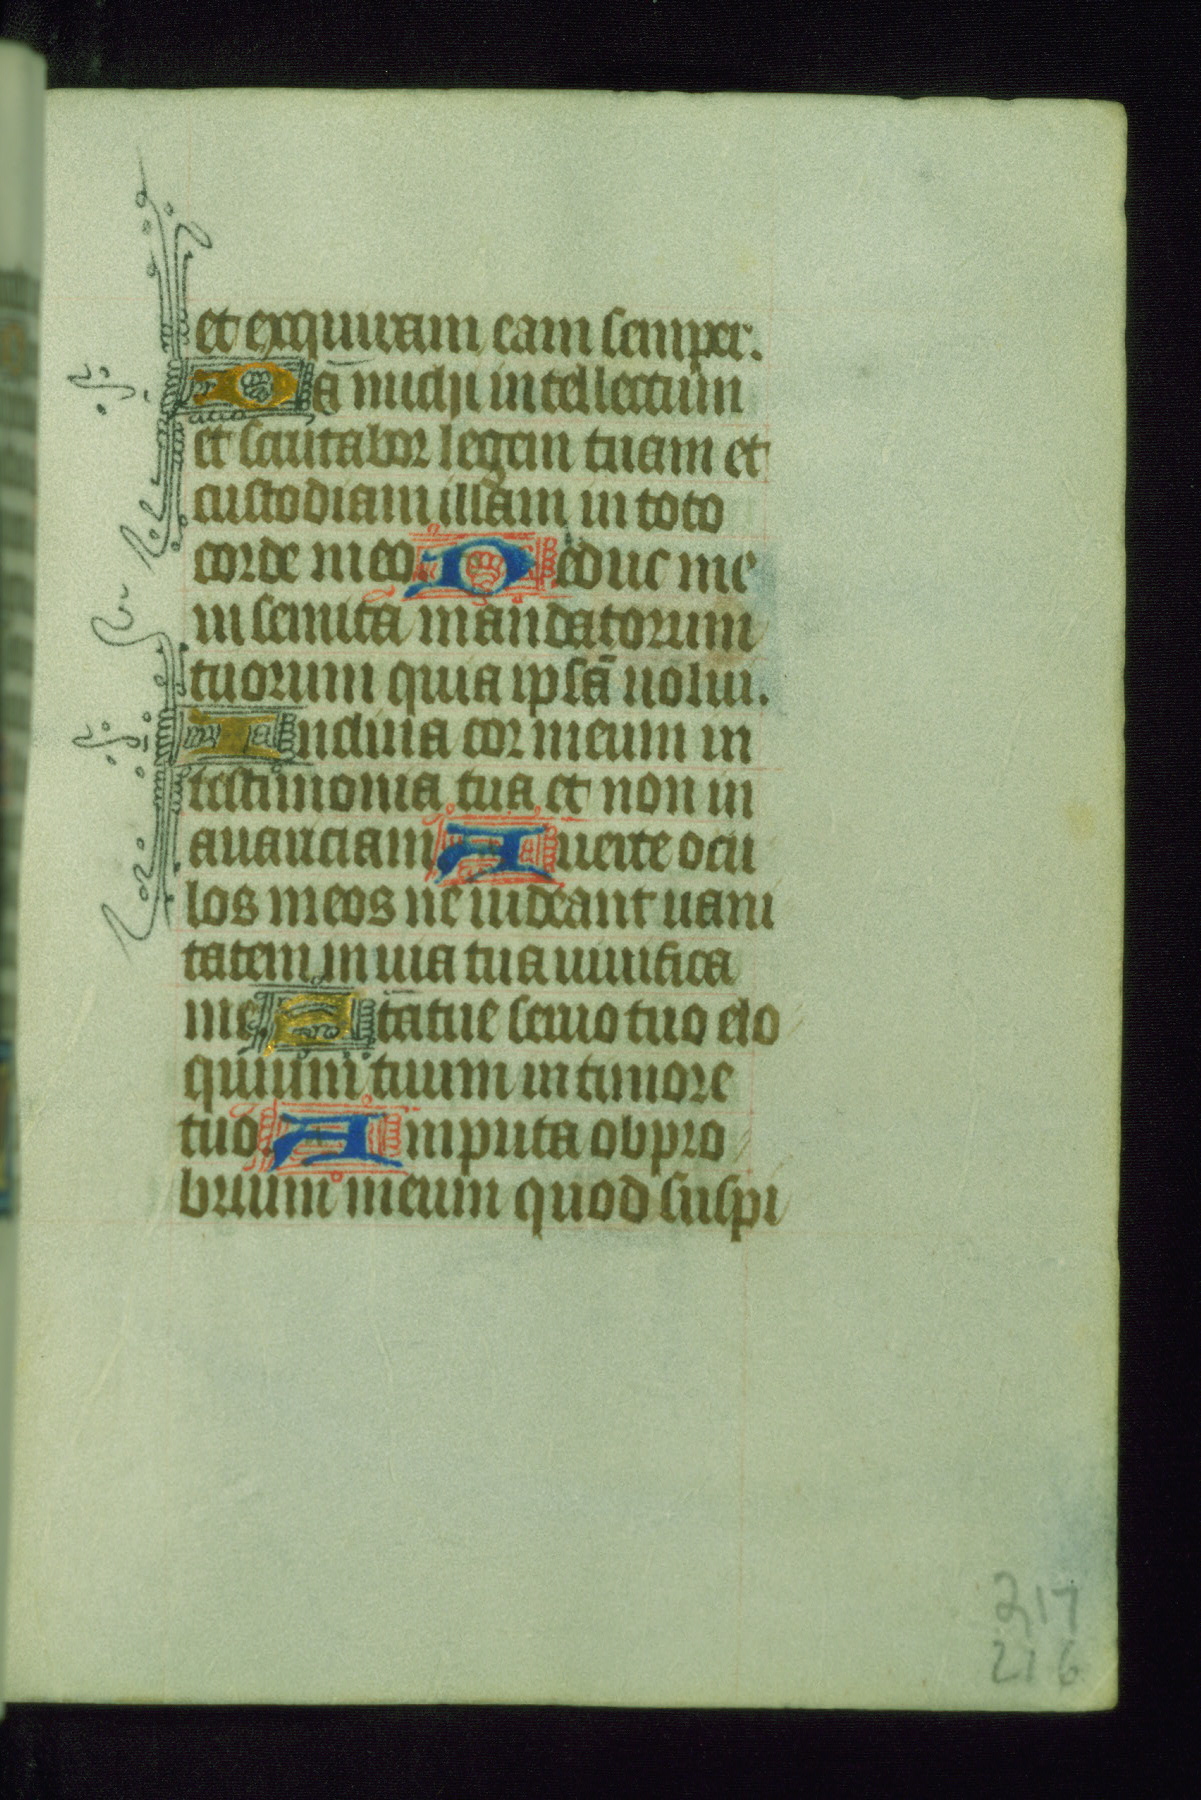 et exquiram eam semper.
Da michi intellectum
et scrutabor legem tuam et
custodiam illam in toto
corde meo. Deduc me
in semita mandatorum
tuorum quia ipsā uolui.
Inclina cor meum in
testimonia tua et non in
auariciam. Auerte ocu
los meos ne uideant uani
tatem in uia tua uiuifica
me. Statue seruo tuo elo
quium tuum in timore
tuo. Amputa obpro
brium meum quod suspi
217
216